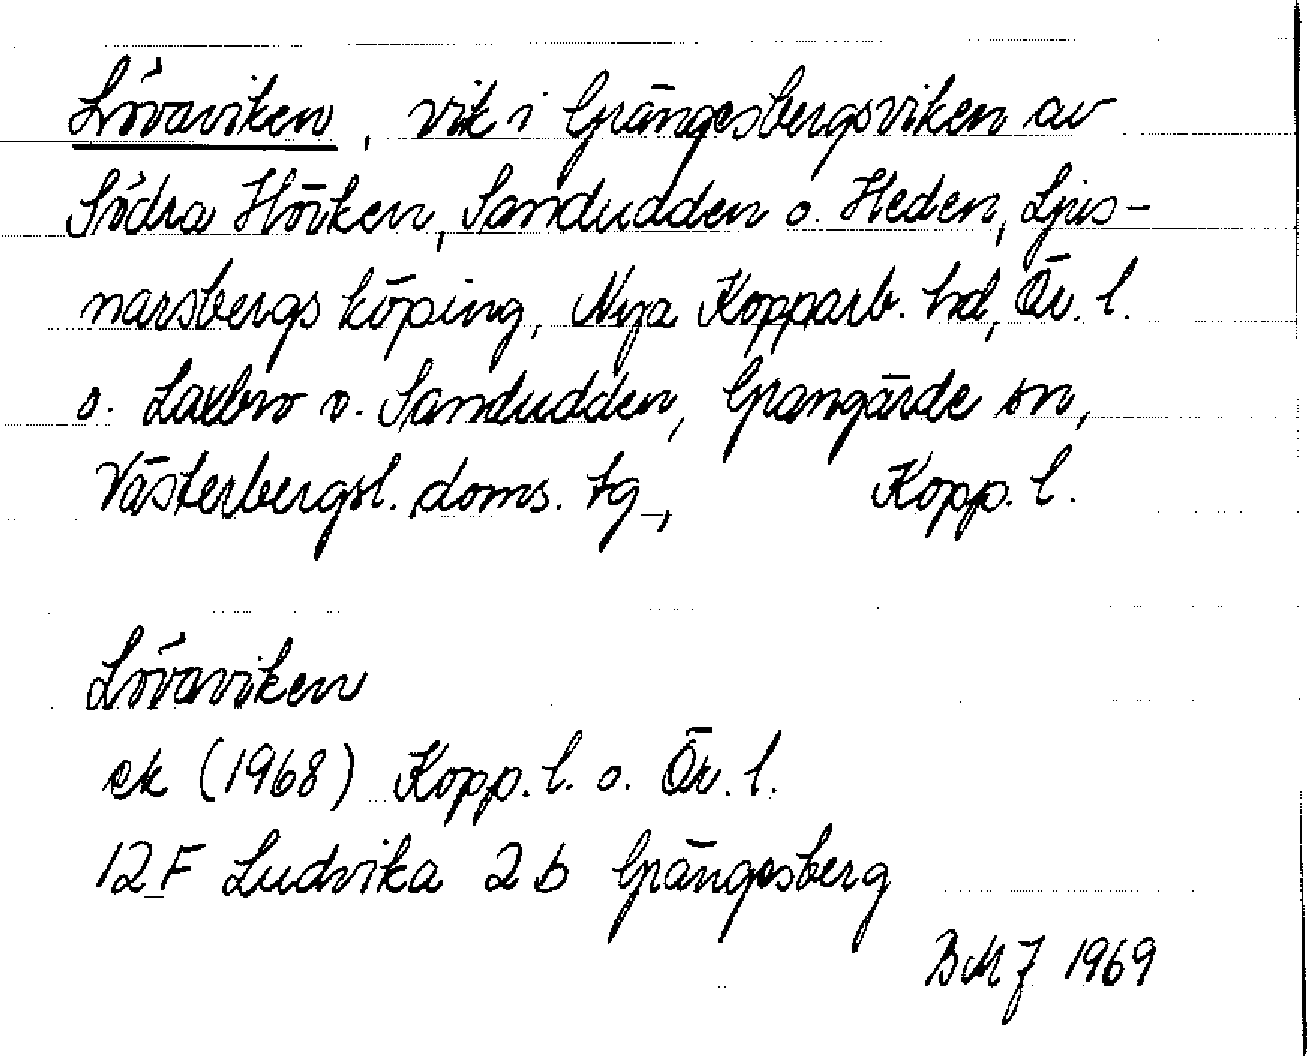 Lövaviken, vik i Grängesbergsviken av
Södra Hörken, Sandudden o. Heden, Ljus-
narsbergs köping, Nya Kopparb. hd, Ör. l.
o. Laxbro v. Sandudden, Grangärde sn,
Västerbergsl. doms. tg, Kopp. l.
Lövaviken
ek (1968) Kopp. l. o. Ör. l.
12F Ludvika 2b Grängesberg
BMJ 1969